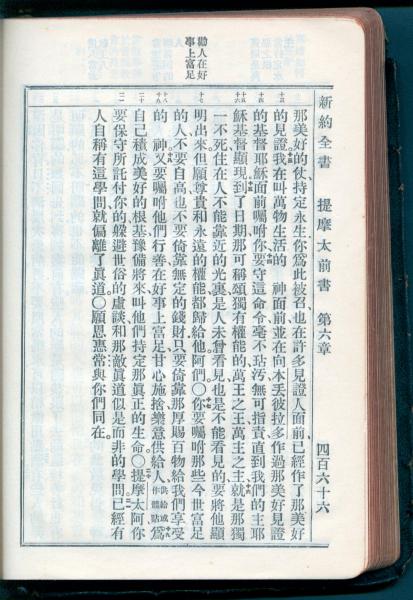 新約全書 提摩太前書 第六章 四百六十六
勸人在好
事上富足
十三
十四
十五
十六
十七
十八
十九
二十
二一
那美好的仗、持定永生、你爲此被召、也在許多見證人面前、已經作了那美好
的見證。我在叫萬物生活的 神面前、並在向本丟彼拉多作過那美好見證
的基督耶穌面前囑咐你、要守這命令、毫不玷汚、無可指責、直到我們的主耶
穌基督顯現。到了日期、那可稱頌獨有權能的萬王之王、萬主之主、就是那獨
一不死、住在人不能靠近的光裏、是人未曾看見、也是不能看見的、要將他顯
明出來。但願尊貴和永遠的權能、都歸給他。阿們。〇你要囑咐那些今世富足
的人、不要自高、也不要倚靠無定的錢財、只要倚靠那厚賜百物給我們享受
的 神。又要囑咐他們行善、在好事上富足、甘心施捨、樂意供給人、供給或作體貼爲
自己積成美好的根基、豫備將來、叫他們持定那眞正的生命。〇提摩太阿、你
要保守所託付你的、躲避世俗的虛談、和那敵眞道似是而非的學問。已經有
人自稱有這學問、就偏離了眞道。〇願恩惠常與你們同在。